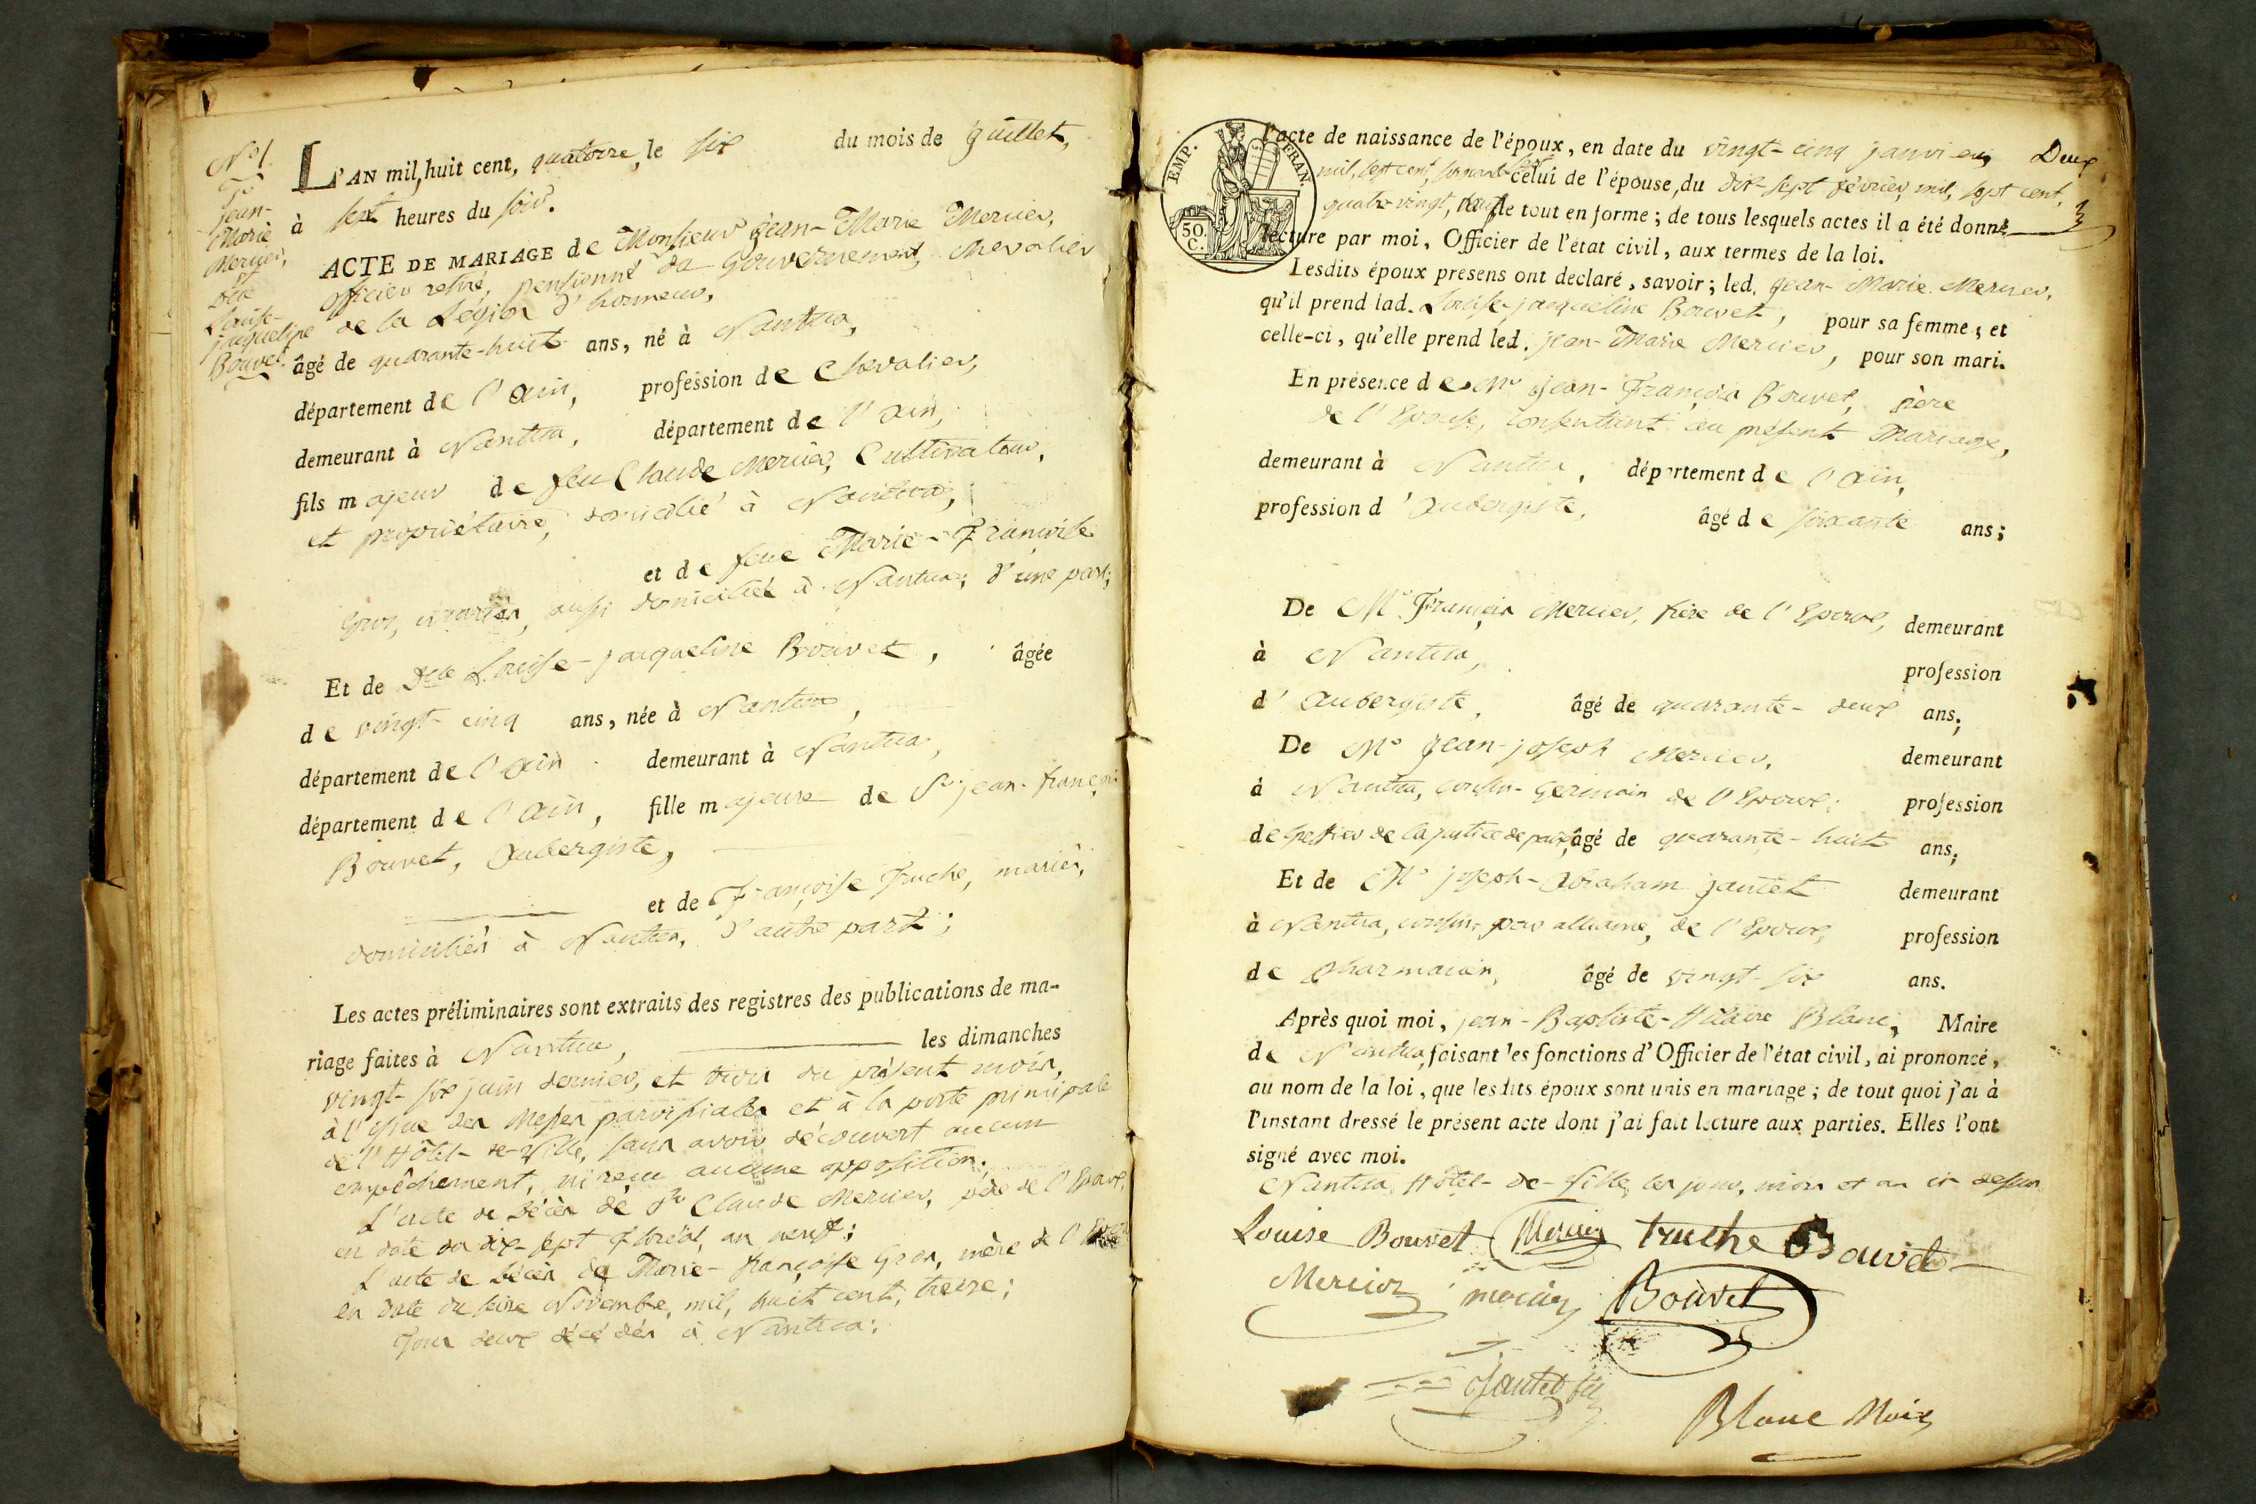 N.º 1.
Jean-
Marie
Mercier,
et
Dlle
Louise-
jaqueline
Bouvet.
L'AN mil, huit cent, quatorze, le six du mois de Juillet,
à sept heures du soir.
ACTE DE MARIAGE de Monsieur Jean-Marie Mercier,
officier retiré, pensionné du Gouvernement, Chevalier
de la Légion d'honneur,
âgé de quarante-huit ans, né à Nantua,
département de l'Ain, profession de Chevalier,
demeurant à Nantua, département de l'Ain,
fils majeur de feu Claude Mercier, Cultivateur,
et propriétaire, domicilié à Nantua,
et de feue Marie-Françoise
Gros, mariés, aussi domiciliée à Nantua; d'une part;
Et de Dlle Louise-jacqueline Bouvet, âgée
de vingt-cinq ans, née à Nantua,
département de l'Ain demeurant à Nantua,
département de l'Ain, fille majeure de Sr jean-françois
Bouvet, Aubergiste,
et de Françoise Truche, mariés,
domiciliés à Nantua, d'autre part;
Les actes préliminaires sont extraits des registres des publications de ma-
riage faites à Nantua, les dimanches
vingt-six juin dernier, et trois du présent mois,
à l'issue des Messes paroissiales et à la porte principale
de l'Hôtel-de-Ville, sans avoir découvert aucun
empêchement, ni reçu aucune opposition;
L'acte de décès de Sr Claude Mercier, père de l'Epoux,
en date du dix-sept floréal, an neuf;
L'acte de décès de Marie-françoise Gros, mère de l'
en date du seize Novembre, mil, huit cent, treize;
Tous deux décédés à Nantua;
EMP. FRAN.
50. C.
l'acte de naissance de l'époux, en date du vingt-cinq janvier, Deux
mil, sept cent, soixante-six celui de l'épouse, du dix-sept février, mil, sept cent,
quatre-vingt, neuf le tout en forme; de tous lesquels actes il a été donné
lecture par moi, Officier de l'état civil, aux termes de la loi.
Lesdits époux presens ont declaré, savoir; led. Jean-Marie Mercier,
qu'il prend lad. Louise-jacqueline Bouvet, pour sa femme; et
celle-ci, qu'elle prend led. Jean-Marie Mercier, pour son mari.
En présence de Mr jean-François Bouvet, père
de l'Epouse, consentant au présent Mariage,
demeurant à Nantua, département de l'Ain,
profession d'Aubergiste, âgé de soixante ans;
De Mr François Mercier, frère de l'Epoux, demeurant
à Nantua, profession
d'Aubergiste, âgé de quarante-deux ans;
De Mr Jean-joseph Mercier, demeurant
à Nantua, cousin-Germain de l'Epoux; profession
de Greffier de la justice de paix, âgé de quarante-huit ans;
Et de Mr joseph-Abraham Jantet demeurant
à Nantua, cousin par alliance, de l'Epoux, profession
de Pharmacien, âgé de vingt-six ans.
Après quoi moi, jean-Baptiste-Hilaire Blanc, Maire
de Nantua, faisant les fonctions d'Officier de l'état civil, ai prononcé,
au nom de la loi, que lesdits époux sont unis en mariage; de tout quoi j'ai à
l'instant dressé le présent acte dont j'ai fait lecture aux parties. Elles l'ont
signé avec moi.
Nantua, Hôtel-de-Ville, les jour, mois et an ci dessus
Louise Bouvet Mercier truche Bouvet
Mercier mercier Bouvet
Jantet fils
Blanc Maire